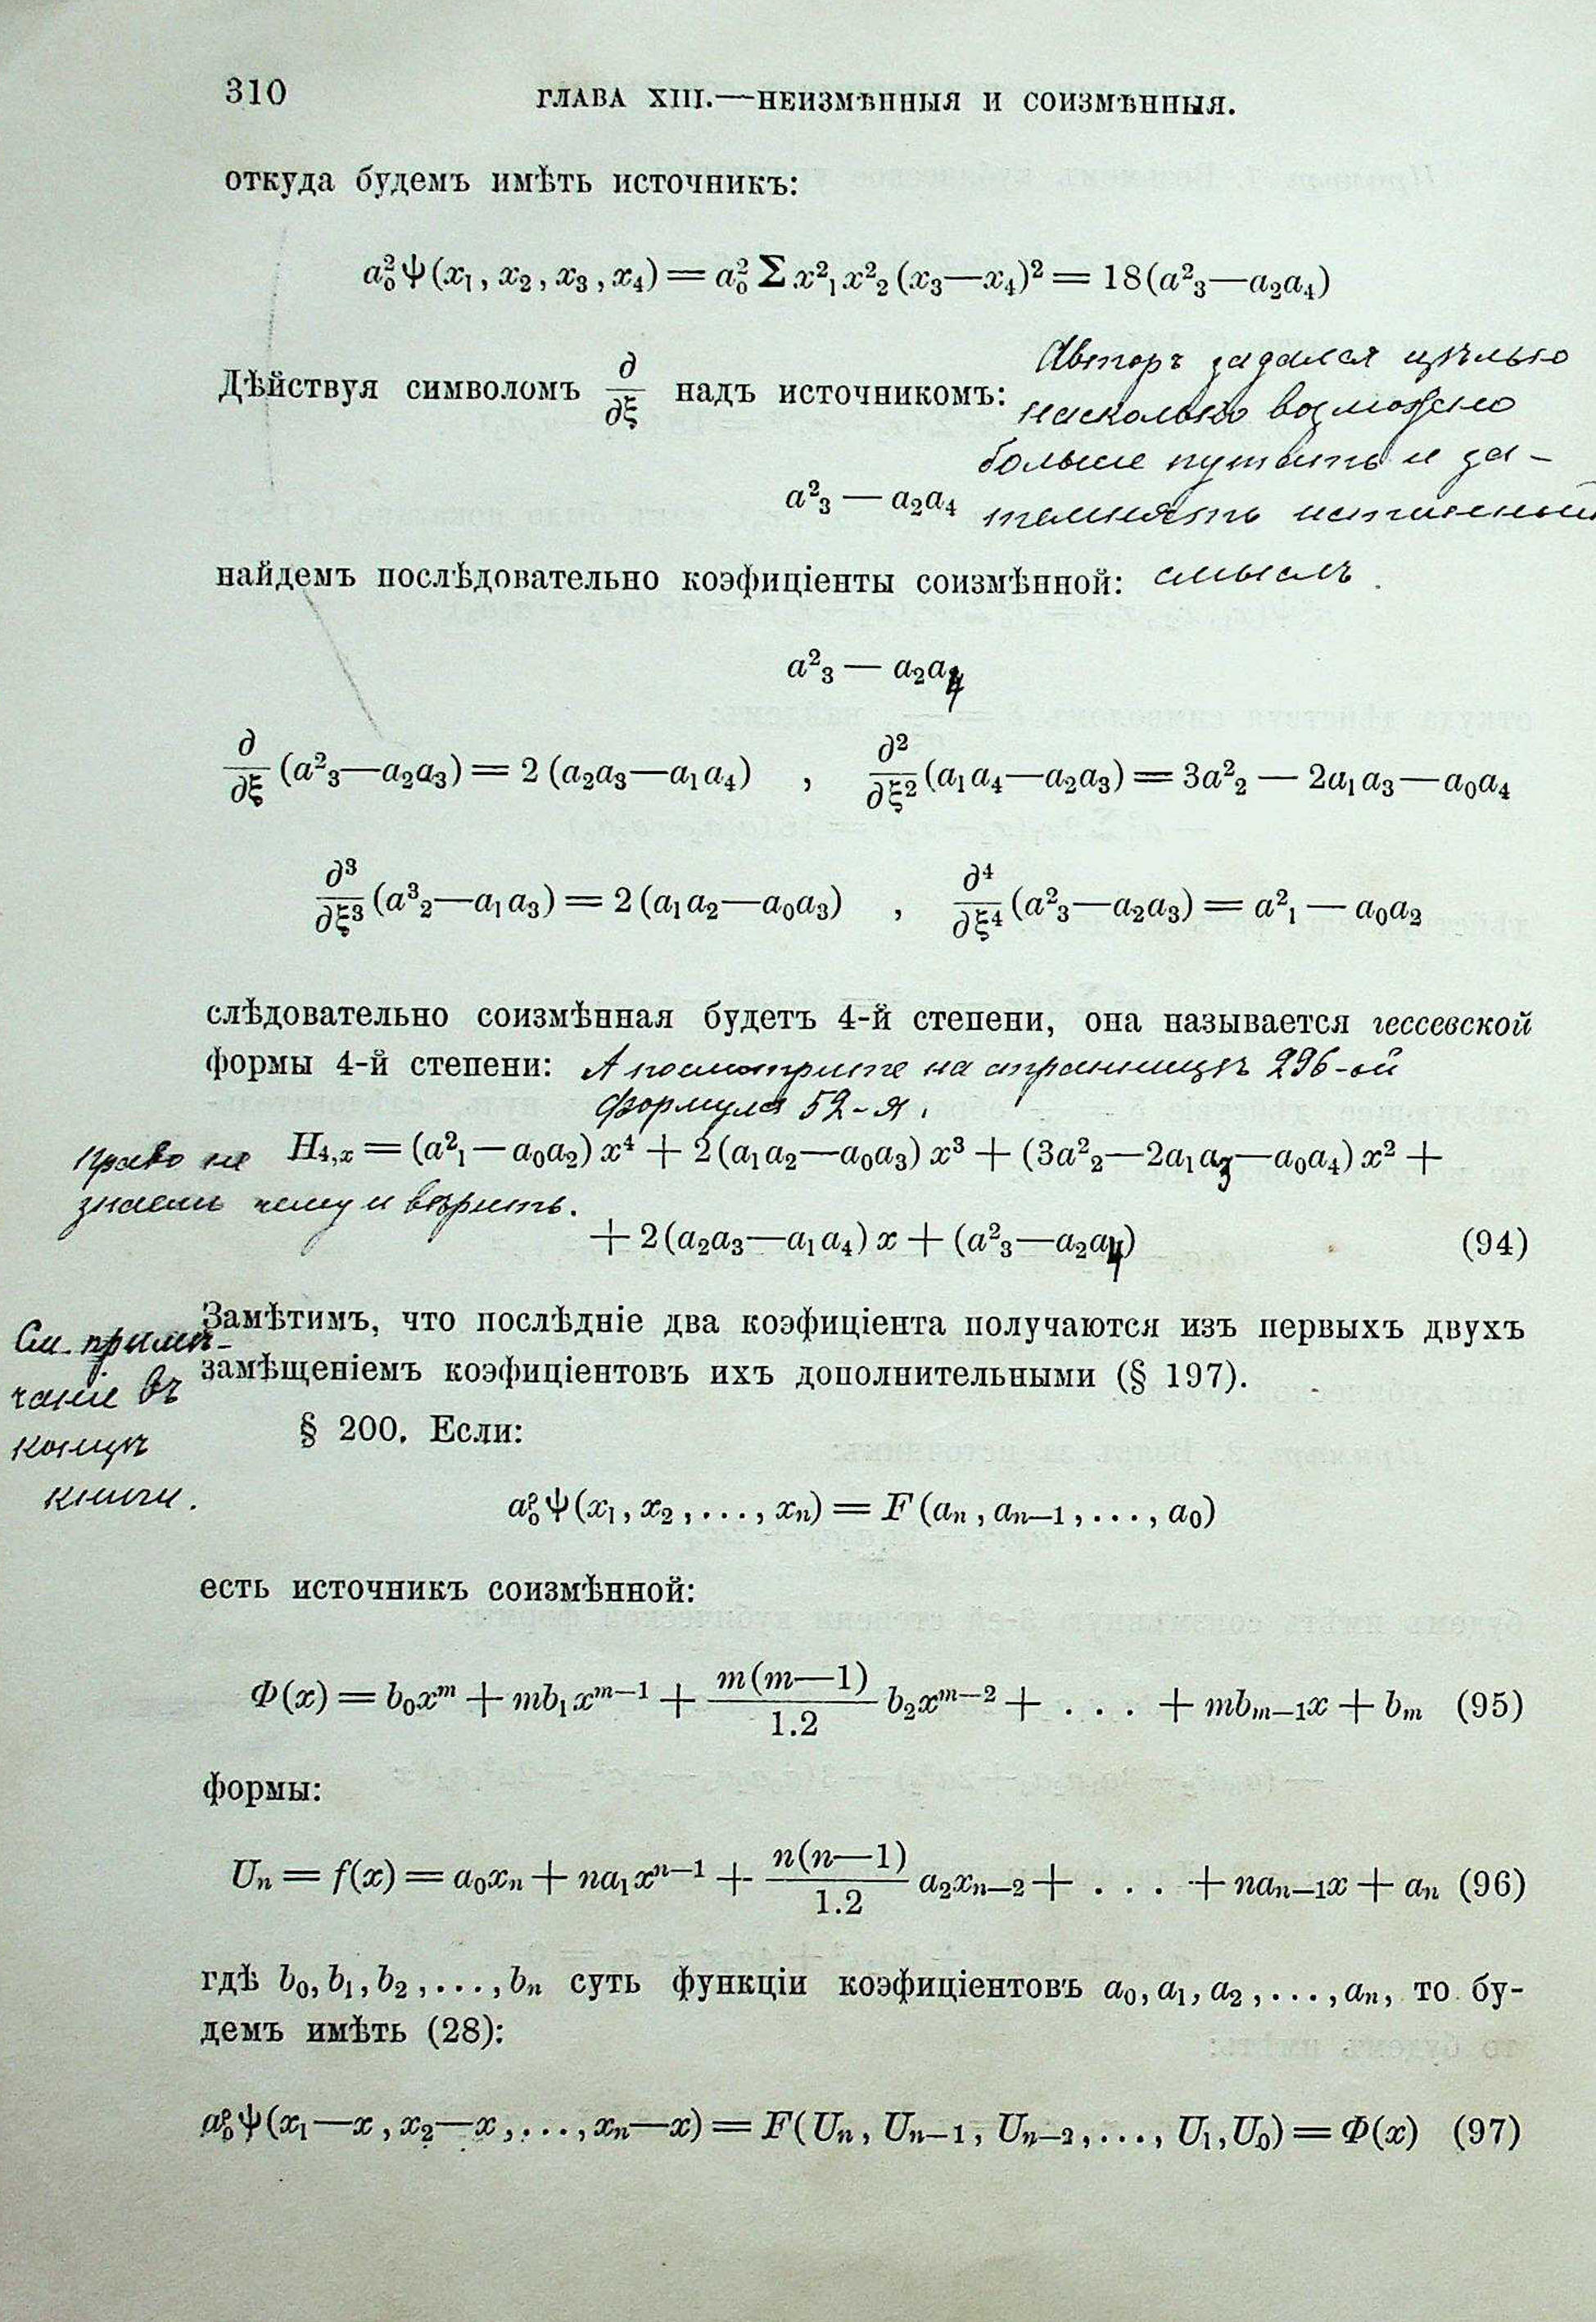 310
ГЛАВА XIII.—НЕИЗМѢННЫЯ И СОИЗМѢННЫЯ.
откуда будемъ имѣть источникъ:
a²₀ψ(x₁, x₂, x₃, x₄) = a²₀ Σ x²₁x²₂(x₃—x₄)² = 18(a²₃—a₂a₄)
Дѣйствуя символомъ ∂/∂ξ надъ источникомъ:
Авторъ задался цѣлью
насколько возможно
больше путать и за-
a²₃ — a₂a₄
темнять истинный
найдемъ послѣдовательно коэфиціенты соизмѣнной: смыслъ.
a²₃ — a₂a₄
∂/∂ξ (a²₃—a₂a₃) = 2 (a₂a₃—a₁a₄) , ∂²/∂ξ² (a₁a₄—a₂a₃) = 3a²₂ — 2a₁a₃—a₀a₄
∂³/∂ξ³ (a³₂—a₁a₃) = 2 (a₁a₂—a₀a₃) , ∂⁴/∂ξ⁴ (a²₃—a₂a₃) = a²₁ — a₀a₂
слѣдовательно соизмѣнная будетъ 4-й степени, она называется гессевской
формы 4-й степени: А посмотрите на страницѣ 296-ой
формула 52-я.
H₄,ₓ = (a²₁—a₀a₂) x⁴ + 2(a₁a₂—a₀a₃) x³ + (3a²₂—2a₁a₃—a₀a₄) x² +
Право не
знаешь чему и вѣрить.
+ 2(a₂a₃—a₁a₄) x + (a²₃—a₂a₄) (94)
Замѣтимъ, что послѣдніе два коэфиціента получаются изъ первыхъ двухъ
замѣщеніемъ коэфиціентовъ ихъ дополнительными (§ 197).
См. примѣ-
чаніе въ
концѣ
книги.
§ 200. Если:
a₀^ρ ψ(x₁, x₂, ..., xₙ) = F (aₙ, aₙ₋₁, ..., a₀)
есть источникъ соизмѣнной:
Φ(x) = b₀xᵐ + mb₁xᵐ⁻¹ + m(m—1)/1.2 b₂xᵐ⁻² + . . . + mbₘ₋₁x + bₘ (95)
формы:
Uₙ = f(x) = a₀xₙ + na₁xⁿ⁻¹ + n(n—1)/1.2 a₂xₙ₋₂ + . . . + naₙ₋₁x + aₙ (96)
гдѣ b₀, b₁, b₂, ..., bₙ суть функціи коэфиціентовъ a₀, a₁, a₂, ..., aₙ, то бу-
демъ имѣть (28):
a₀^ρ ψ(x₁—x, x₂—x, ..., xₙ—x) = F(Uₙ, Uₙ₋₁, Uₙ₋₂, ..., U₁, U₀) = Φ(x) (97)